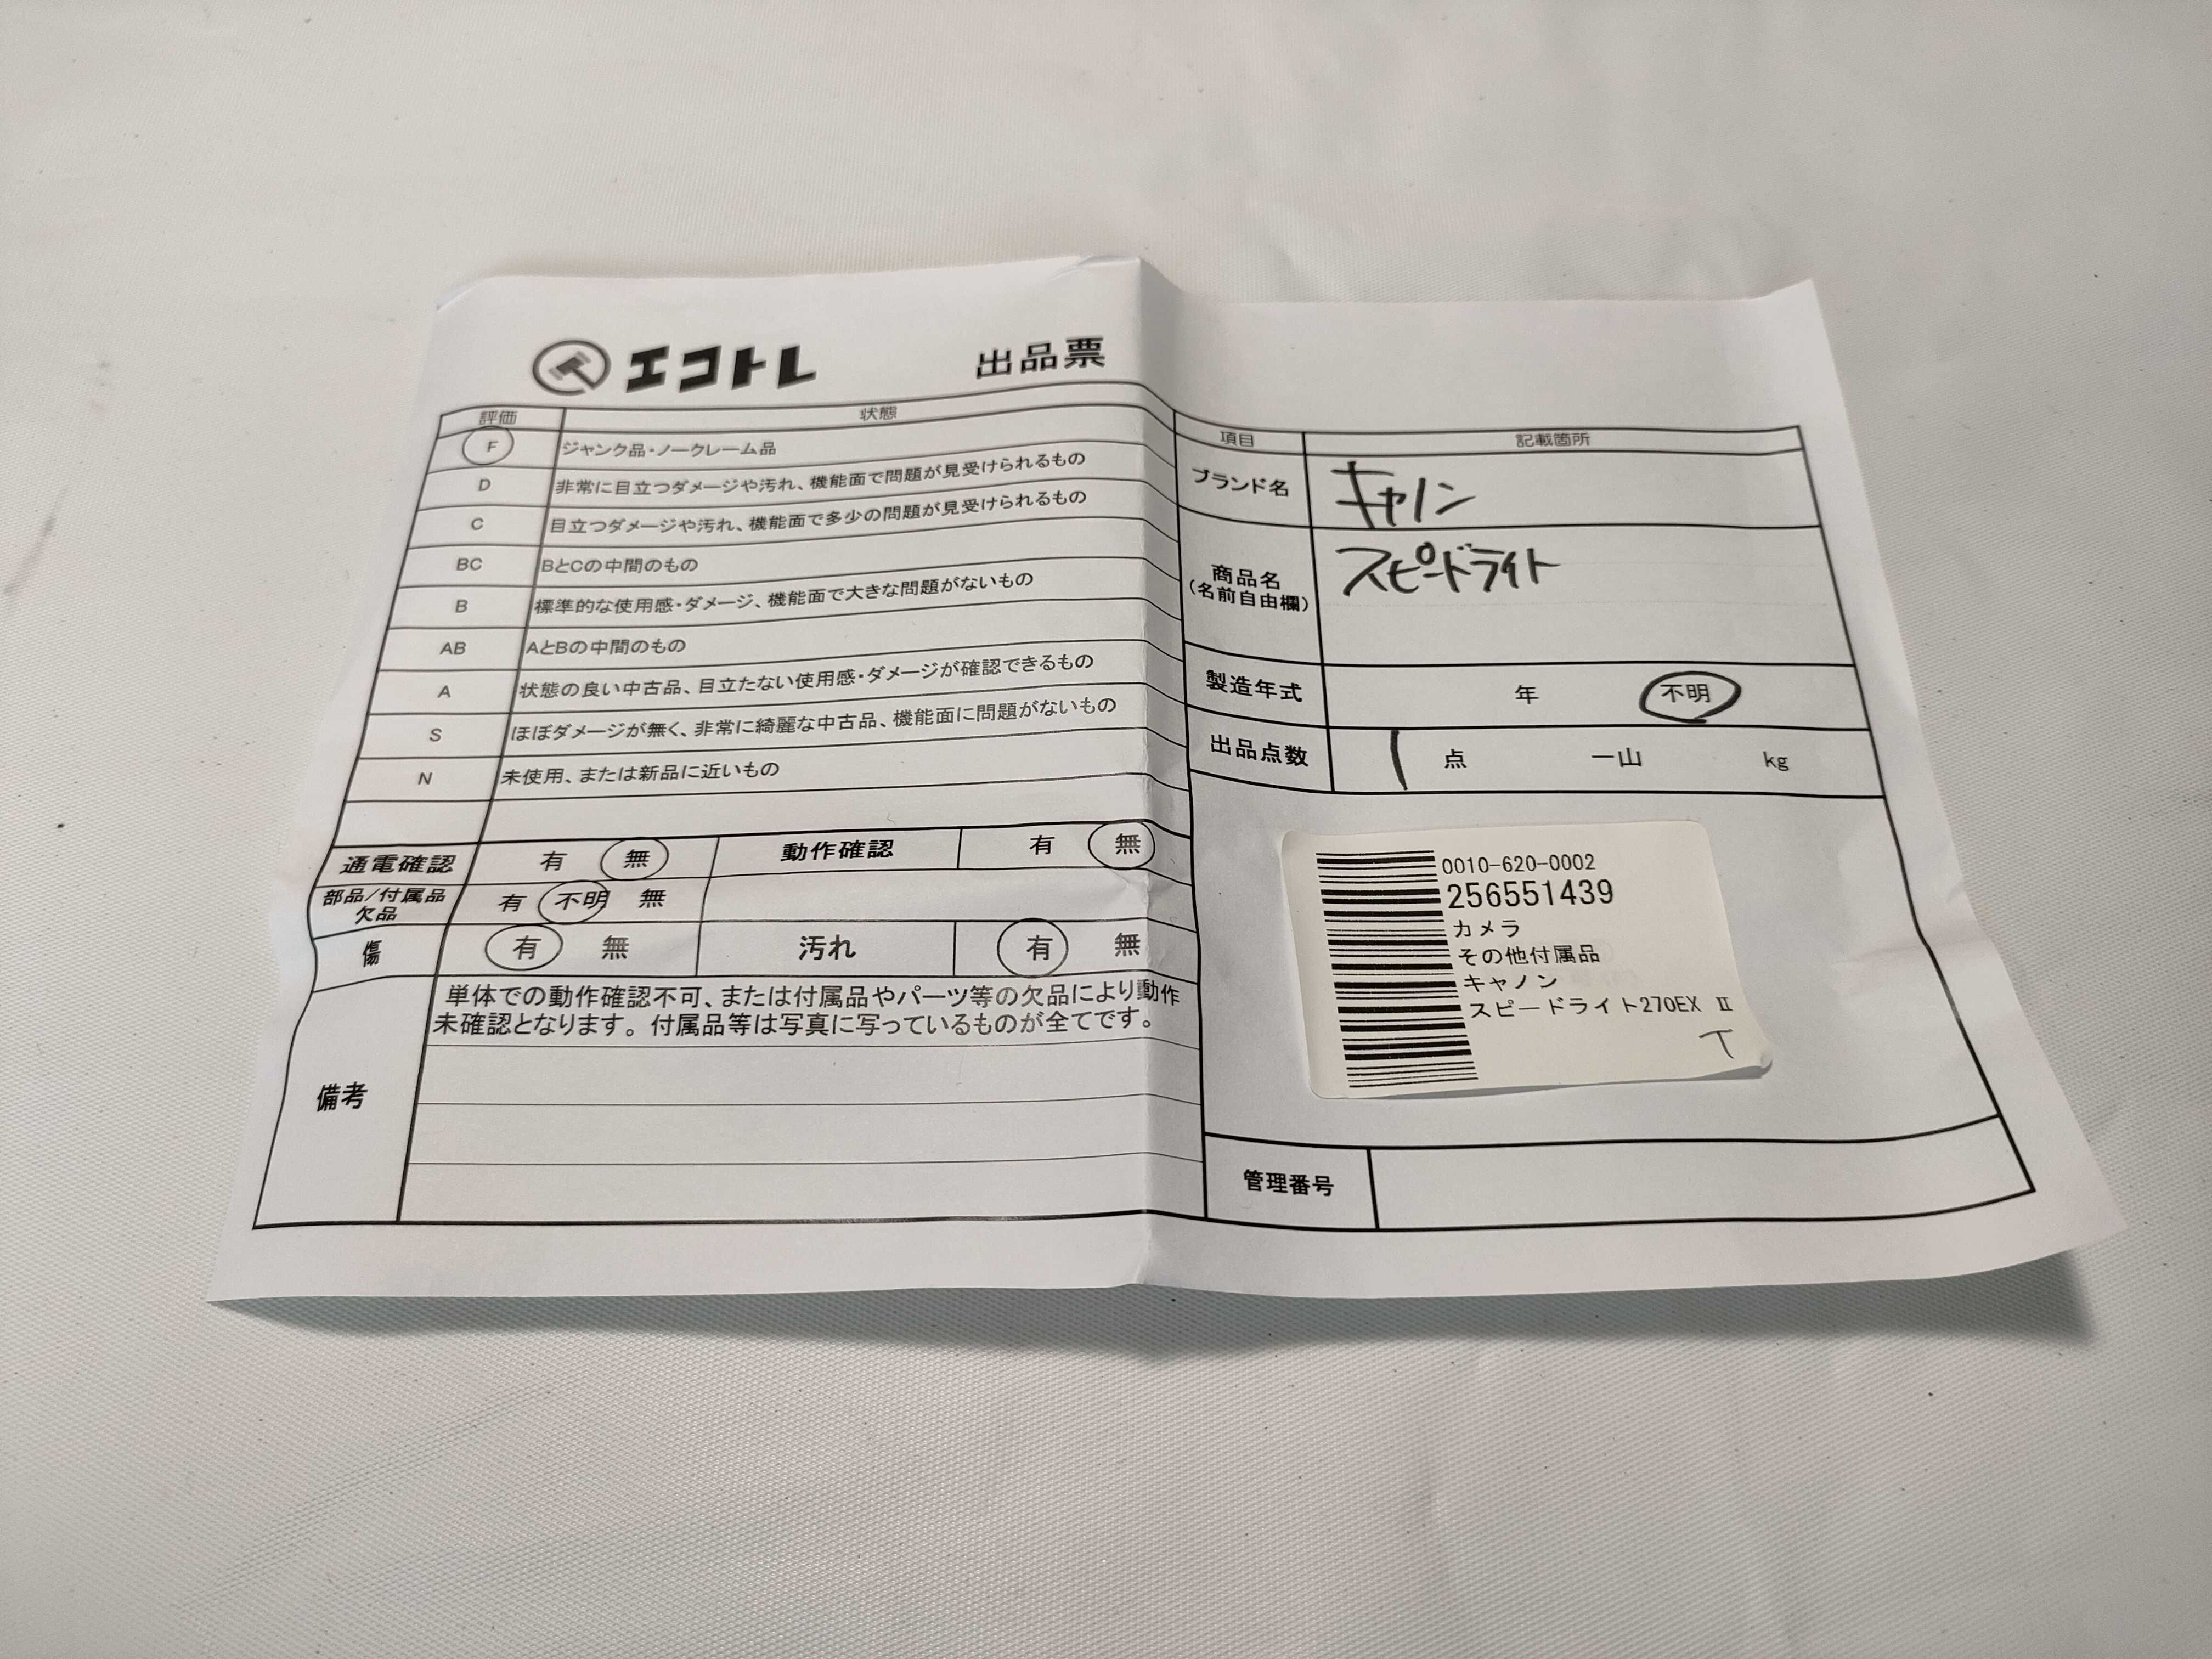 エコトレ 出品票
評価 状態
F ジャンク品・ノークレーム品
D 非常に目立つダメージや汚れ、機能面で問題が見受けられるもの
C 目立つダメージや汚れ、機能面で多少の問題が見受けられるもの
BC BとCの中間のもの
B 標準的な使用感・ダメージ、機能面で大きな問題がないもの
AB AとBの中間のもの
A 状態の良い中古品、目立たない使用感・ダメージが確認できるもの
S ほぼダメージが無く、非常に綺麗な中古品、機能面に問題がないもの
N 未使用、または新品に近いもの
通電確認 有 無 動作確認 有 無
部品/付属品
欠品 有 不明 無
傷 有 無 汚れ 有 無
備考
単体での動作確認不可、または付属品やパーツ等の欠品により動作
未確認となります。付属品等は写真に写っているものが全てです。
項目 記載箇所
ブランド名 キャノン
商品名
(名前自由欄) スピードライト
製造年式 年 不明
出品点数 1 点 一山 kg
0010-620-0002
256551439
カメラ
その他付属品
キャノン
スピードライト270EX Ⅱ
T
管理番号